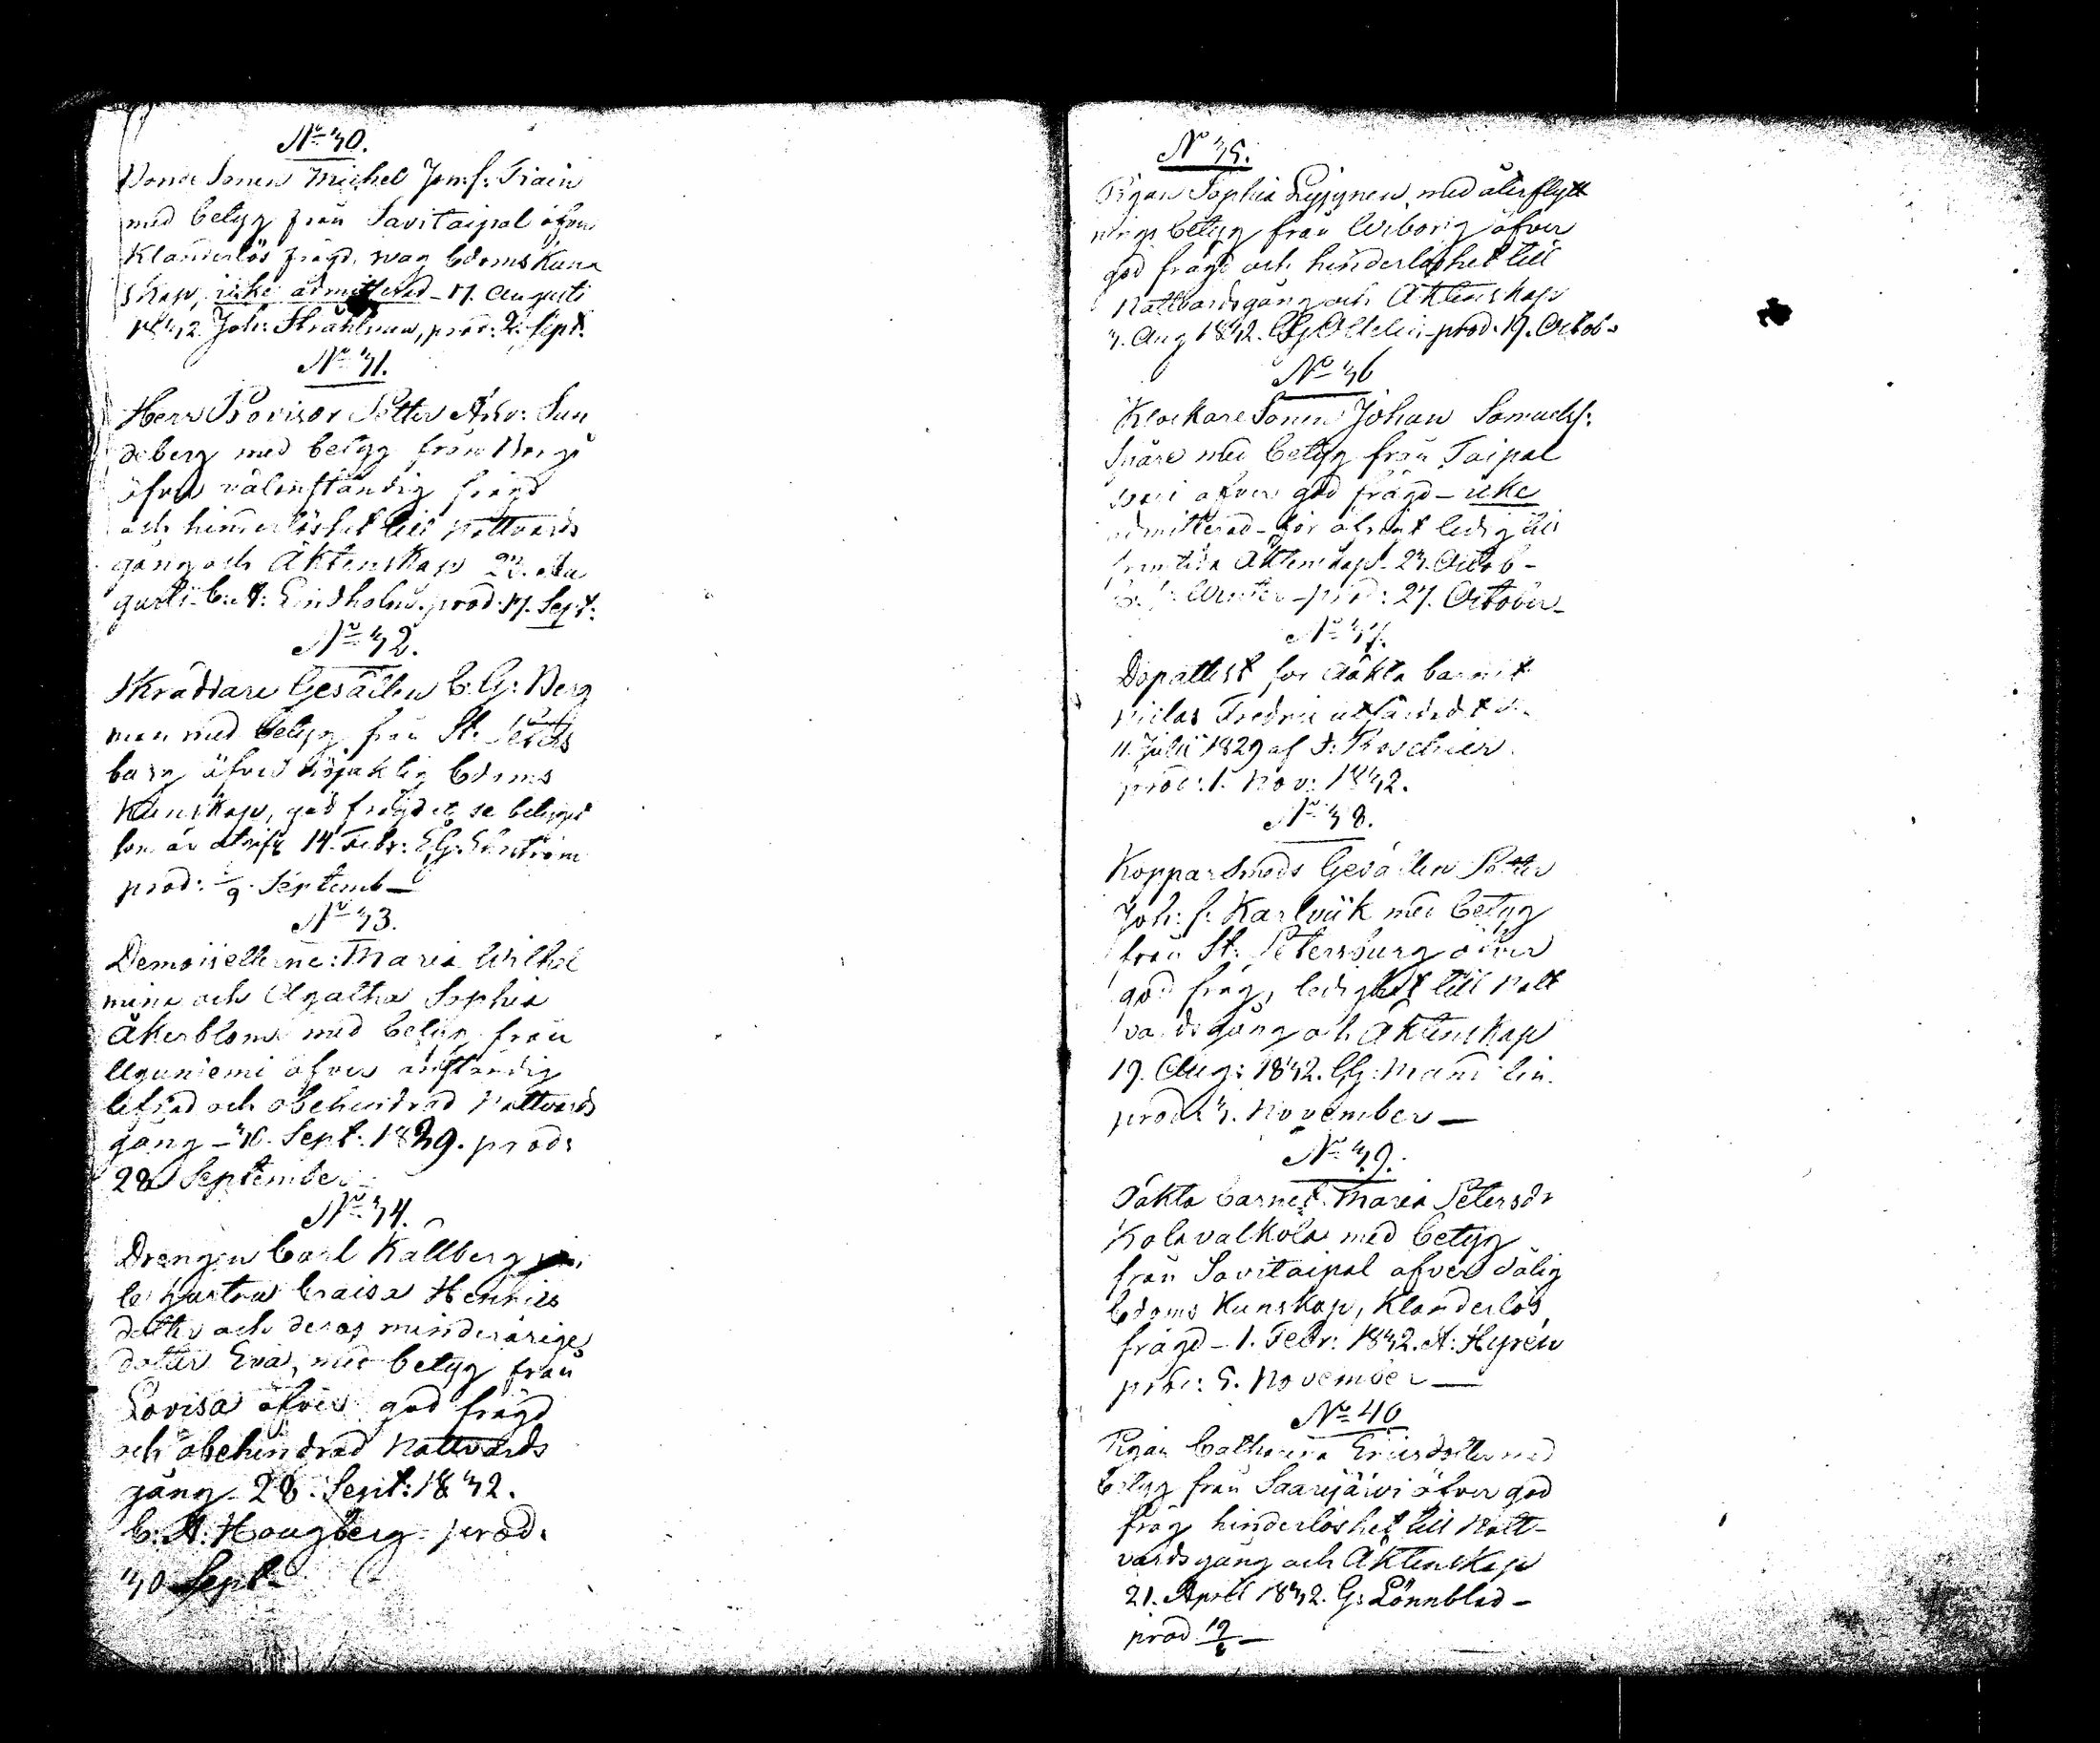 No 30.
Bonde Sonen Michel Jomf: Train
med betyg från Savitaipal öfver
Klanderlös frägd, svag Cdoms Kuns
skap, icke admitterad - 17. Augusti
1832 Joh: Stråhlman, prod: 2. Sept.
No 31.
Herr Provisor Petter Sun
deberg med betyg från Borgå
öfver välanständig frägd
och hinderlöshet till Nattvards
gång och Äktenskap 23. Au
gusti C: A: Lindholm. prod: 17. Sept:
No 32.
Skräddare Gesällen C: G: Berg
man med betyg från St. Peters
burg öfver nöjaktig Cdoms
Kunskap, god frägd etc se betyget
som är 14. Febr: E:G: Ehrström
prod: 9. Septemb -
No 33.
Demoisellerne: Maria Wilhel
mina och Agatha Sophia
Åkerblom med betyg från
Uguniemi öfver anständig
lefnad och obehindrad Nattvards
gång - 30. Sept: 1829. prod:
28 September -
No 34.
Drengen Carl Kallberg
hustru Caisa Henrics
dotter och deras minderåriga
dotter Eva, med betyg från
Lovisa öfver god frägd
och obehindrad Nattvards
gång - 28. Sept: 1832.
C: A: Hougberg - prod.
30 Sept -
No 35.
Pigan Sophia Lyijynen, med återflytt
nings betyg från Wiborg öfver
god frägd och hinderlöshet till
Nattvardsgång och Äktenskap
3. Aug 1832. prod. 19. Octob -
No 36
Klockare Sonen Johan Samuels:
Snåre med betyg från Taipal
sari öfver god frägd - icke
admitterad - för öfrigt ledig till
framtida Äktenskap - 23. Octob -
Winter - prod: 27. October -
No 37.
Dopattest för äkta barnet
Niclas Fredric utfärdadt d.
11. Julii 1829 af F: Roschier
prod: 1. Nov: 1832.
No 38.
Kopparsmeds Gesällen Petter
Joh: f: Karlviik med betyg
från St: Petersburg öfver
god fräg, ledighet till Natt
vardsgång och Äktenskap
19. Aug: 1832. G: Mandelin.
prod: 3. November -
No 39.
Oäkta barnet Maria Petersdr
Kolavalkola med betyg
från Savitaipal öfver dålig
Cdoms Kunskap, Klanderlös
frägd - 1. Febr: 1832. A: Hyrén
prod: 5. November -
No 40
Pigan Catharina Ericsdotter med
betyg från Saarijärvi öfver god
fräg hinderlöshet till Natt-
vardsgång och Äktenskap
21. April 1832. G: Lönnblad -
prod 19